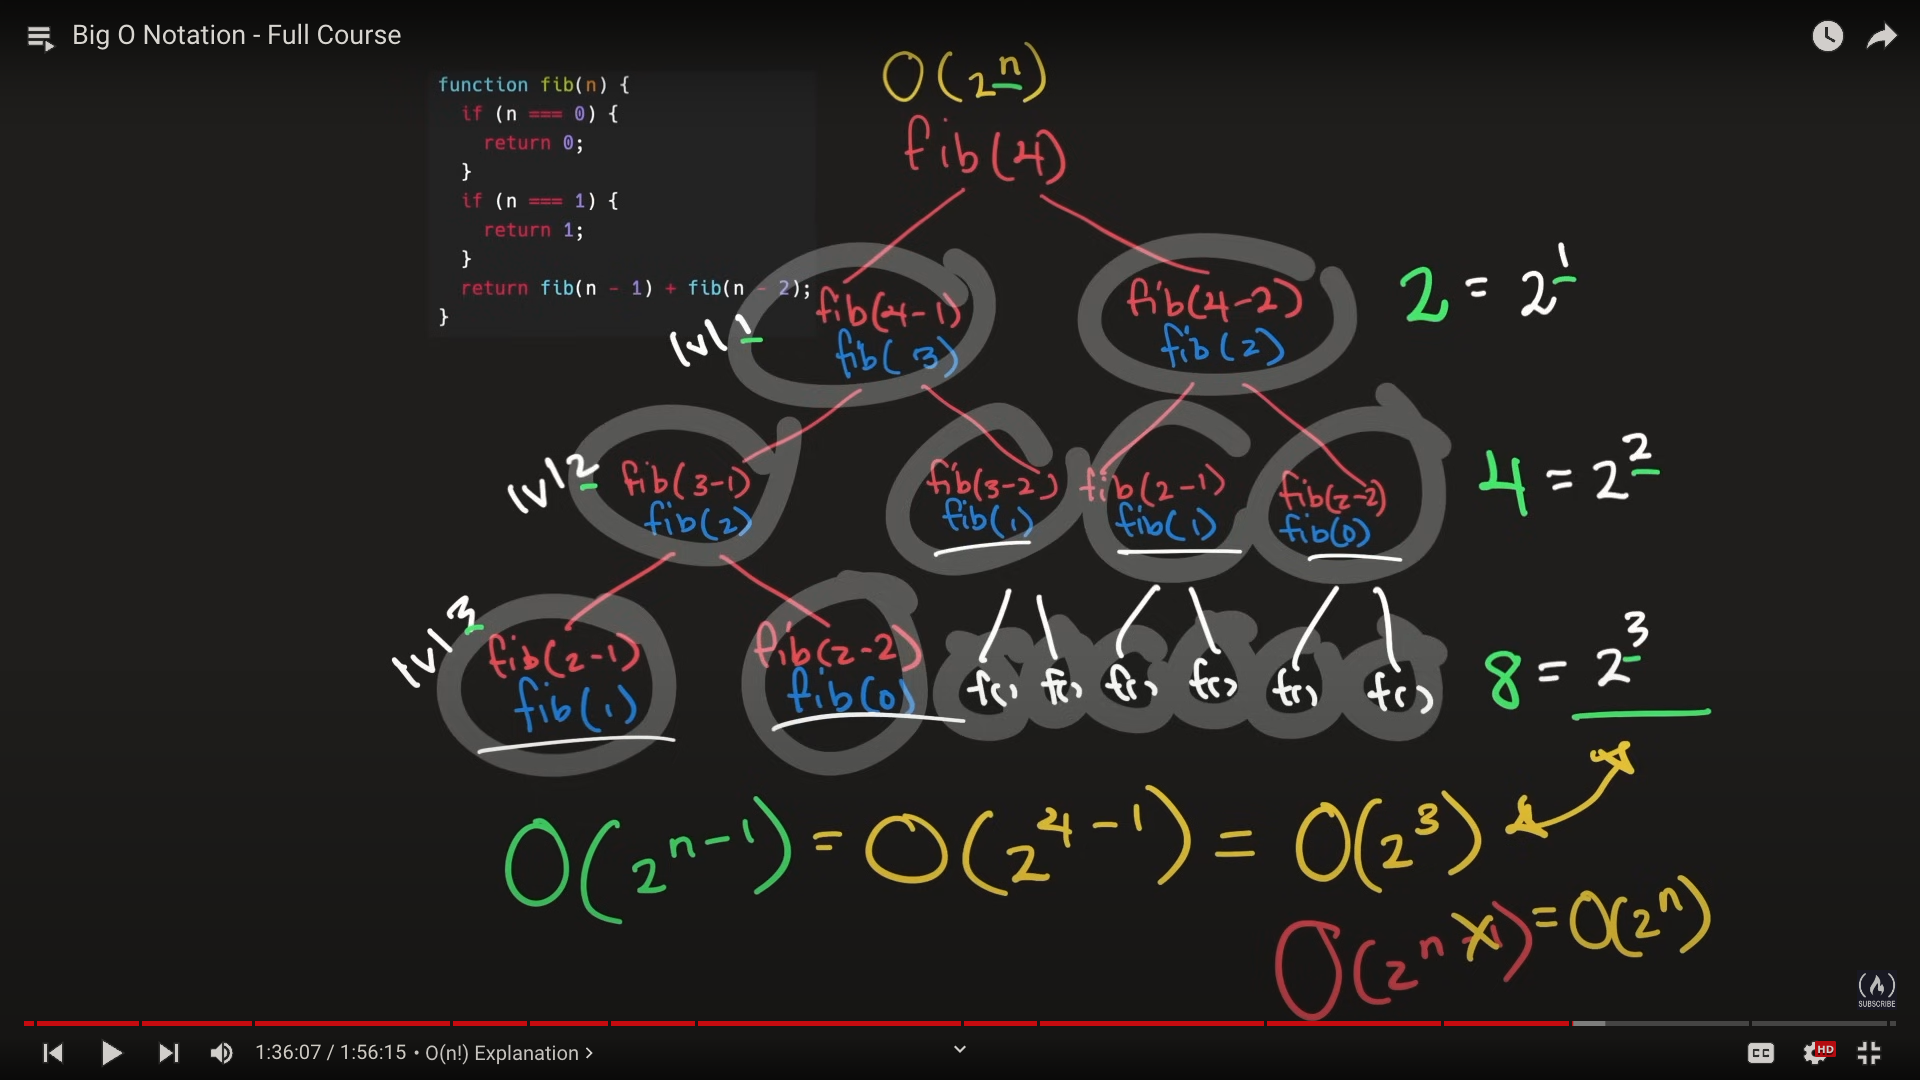 Big O Notation - Full Course
function fib(n) {
if (n === 0) {
return 0;
}
if (n === 1) {
return 1;
}
return fib(n - 1) + fib(n - 2);
}
O(2^n)
fib(4)
lvl 1
fib(4-1)
fib(3)
fib(4-2)
fib(2)
2 = 2^1
lvl 2
fib(3-1)
fib(2)
fib(3-2)
fib(1)
fib(2-1)
fib(1)
fib(2-2)
fib(0)
4 = 2^2
lvl 3
fib(2-1)
fib(1)
fib(2-2)
fib(0)
f() f() f() f() f() f()
8 = 2^3
O(2^n-1) = O(2^4-1) = O(2^3)
O(2^n-1) = O(2^n)
SUBSCRIBE
1:36:07 / 1:56:15 • O(n!) Explanation >
CC
HD